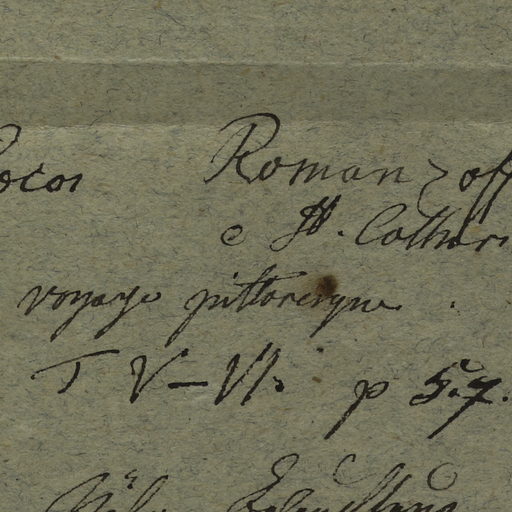 Cocos Romanzoff
e St. Cathari
voyage pittoresque.
T V–VI. p 5.7.